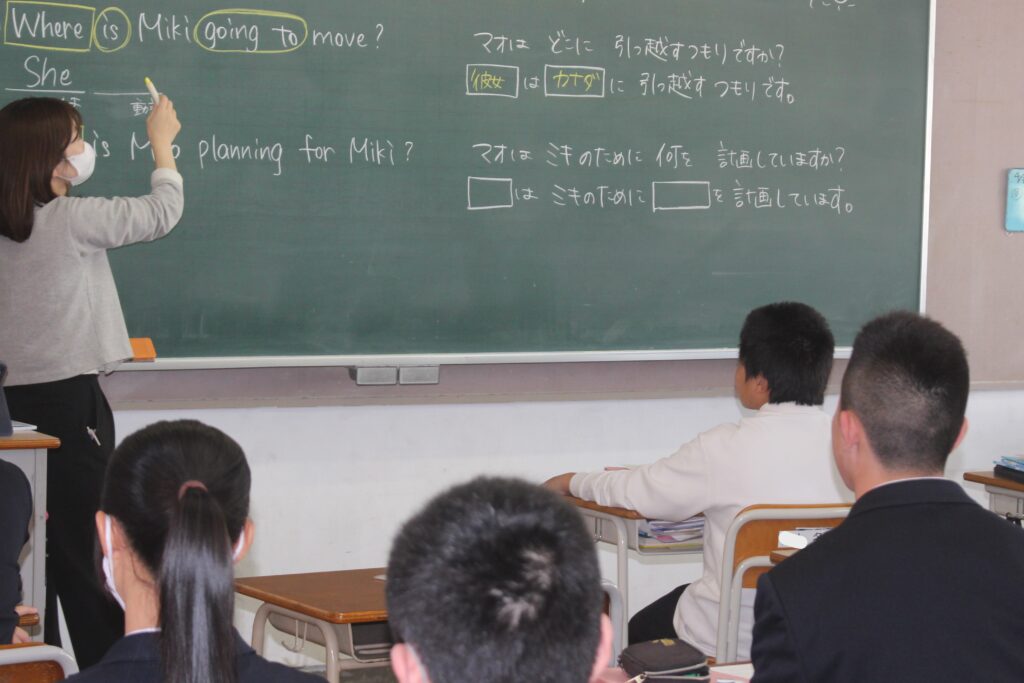 Where is Miki going to move?
She
is Mao planning for Miki?
マオは どこに 引っ越すつもりですか?
彼女 は カナダ に 引っ越す つもりです。
マオは ミキのために 何を 計画していますか?
は ミキのために を 計画しています。